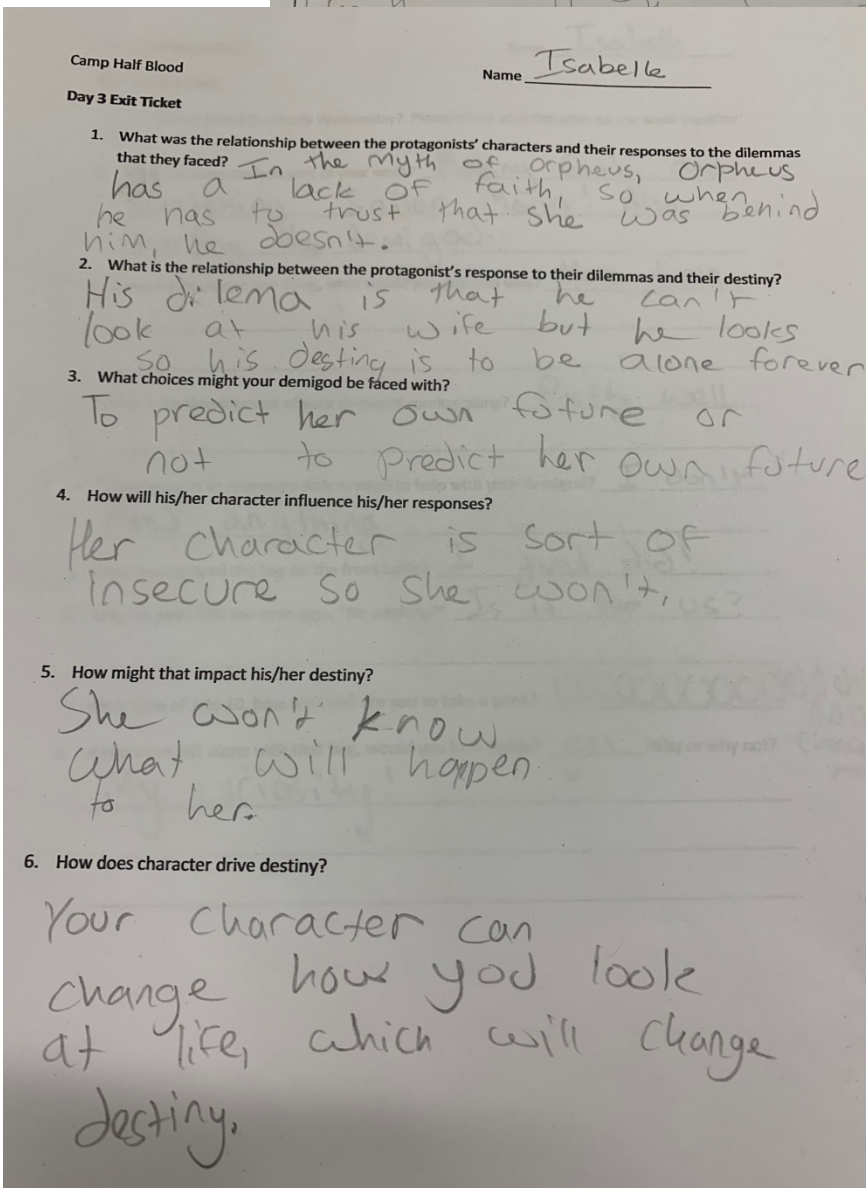 Camp Half Blood
Name Isabelle
Day 3 Exit Ticket
1. What was the relationship between the protagonists' characters and their responses to the dilemmas
that they faced? In the myth of orpheus, Orpheus
has a lack of faith, so when
he has to trust that she was behind
him, he doesn't.
2. What is the relationship between the protagonist's response to their dilemmas and their destiny?
His dilema is that he can't
look at his wife but he looks
so his destiny is to be alone forever
3. What choices might your demigod be faced with?
To predict her own future or
not to predict her own future
4. How will his/her character influence his/her responses?
Her character is sort of
insecure so she won't,
5. How might that impact his/her destiny?
She won't know
what will happen
to her.
6. How does character drive destiny?
Your character can
change how you look
at life, which will change
destiny.